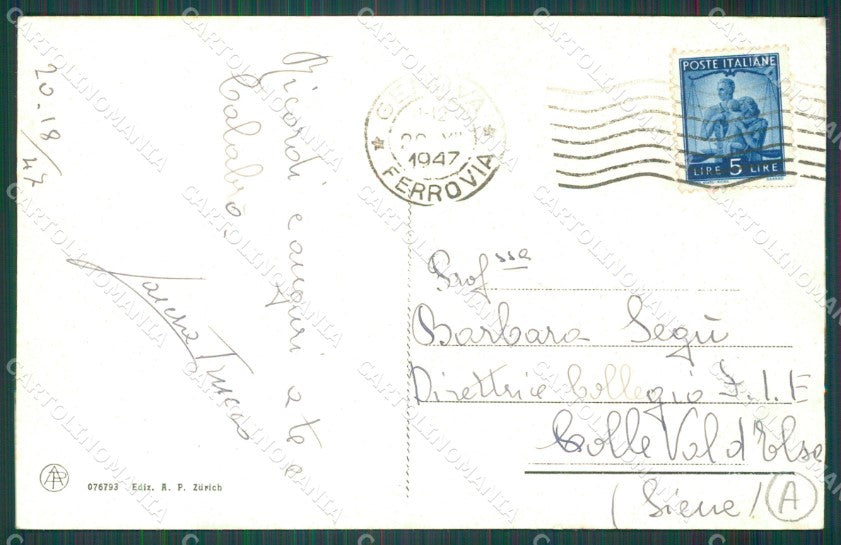 20-18/47
Ricordi e auguri a te e
Calabrò.
GENOVA
1947
FERROVIA
POSTE ITALIANE
LIRE 5 LIRE
Prof ssa
Barbara Segù
Direttrice Collegio F.I.E
Colle Val d'Elsa
(Siena)
A
AP
076793 Ediz. A. P. Zürich
CARTOLINOMANIA